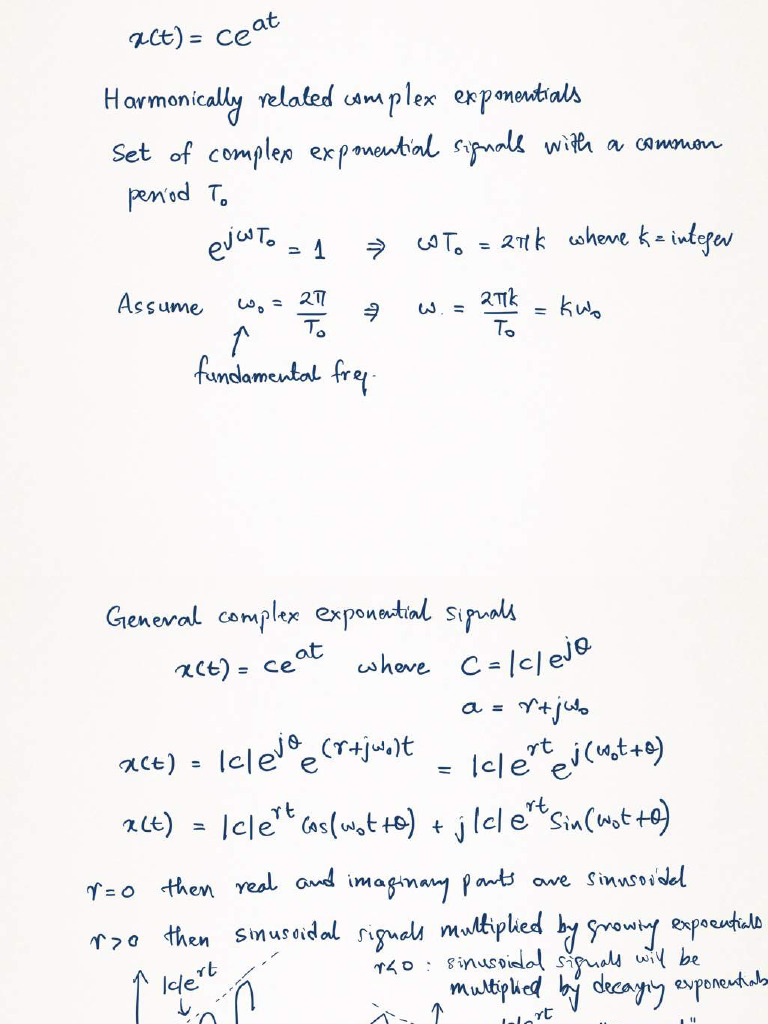 x(t) = ce^at
Harmonically related complex exponentials
Set of complex exponential signals with a common
period T₀
e^jωT₀ = 1 ⇒ ωT₀ = 2πk where k = integer
Assume ω₀ = 2π/T₀ ⇒ ω = 2πk/T₀ = kω₀
↑
fundamental freq.
General complex exponential signals
x(t) = ce^at where C = |c|e^jθ
a = r+jω₀
x(t) = |c|e^jθ e^(r+jω₀)t = |c|e^rt e^j(ω₀t+θ)
x(t) = |c|e^rt Cos(ω₀t+θ) + j|c|e^rt Sin(ω₀t+θ)
r=0 then real and imaginary parts are sinusoidal
r>0 then sinusoidal signals multiplied by growing expoentials
r<0 : sinusoidal signals will be
multiplied by decaying exponentials
|c|e^rt